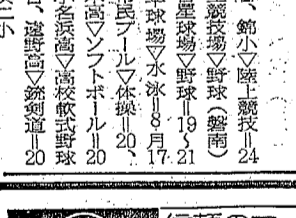 、錦小▽陸上競技＝24
競技場▽野球（磐南）
星球場▽野球＝19〜21
球場▽水泳＝8月17
民プール▽体操＝20、
高▽ソフトボール＝20
小名浜高▽高校軟式野球
、遠野高▽銃剣道＝20
二小